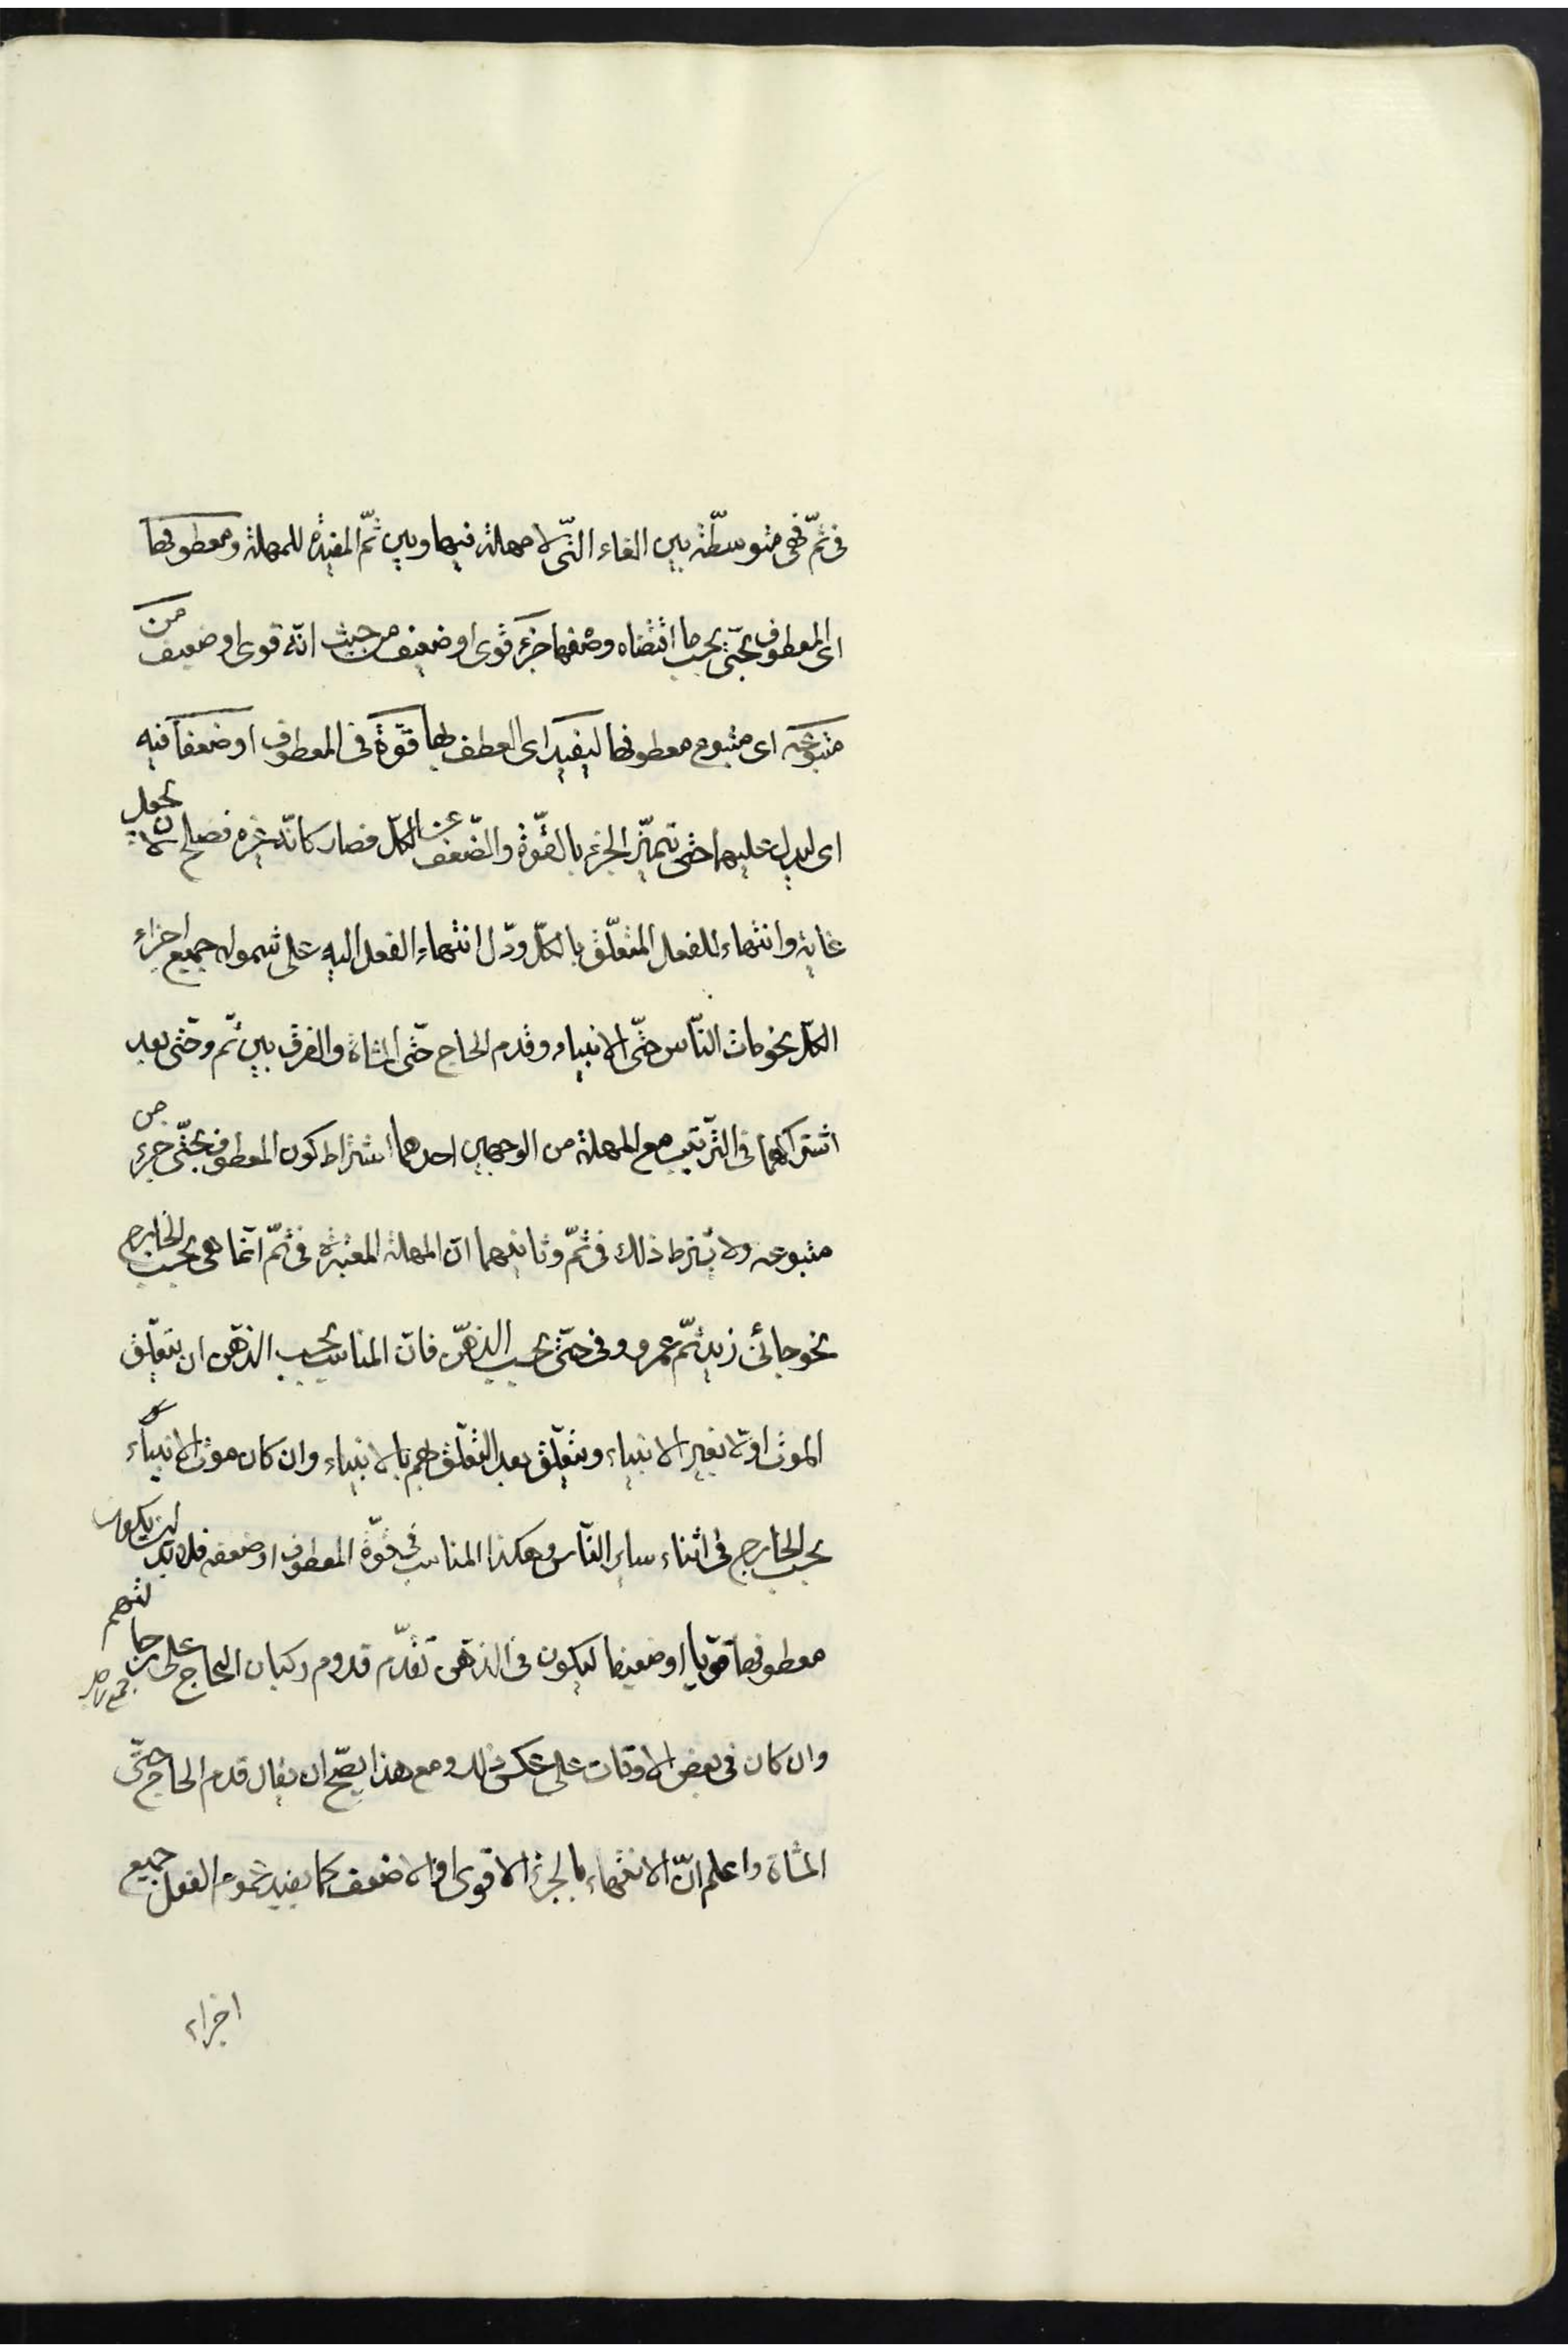 فى ثمّ فهى متوسطّة بين الفاء التّى لا مهلة فيها وبين ثمّ المفيدة للمهلة ومعطوفها
اى المعطوف بحتّى بحسب ما اقتضاه وضعها جزء قوى او ضعيف من حيث انّه قوى او ضعيف من
متبوعه اى متبوع معطوفها ليفيد اى العطف بها قوّة فى المعطوف او ضعفا فيه
اى ليدل عليها حتى تميّز الجزء بالقوّة والضّعف عن الكلّ فصار كانّه غيره فصلح لان يجعل
غاية وانتهاء للفعل المتعلّق بالكلّ ودلّ انتهاء الفعل اليه على شموله جميع اجزاء
الكلّ نحو مات النّاس حتّى الانبياء وقدم الحاج حتّى المشاة والفرق بين ثم وحتى بعد
اشتراكهما فى الترّتيب مع المهلة من الوجهين احدهما اشتراط كون المعطوف بحتّى جزء من
متبوعه ولا يشترط ذلك فى ثمّ وثانيهما انّ المهلة المعتبرة فى ثمّ انّما هى بحسب الخارج
نحو جائنى زيد ثمّ عمرو وفى حتّى بحسب الذهن فانّ المناسب بحسب الذهن ان يتعلّق
الموت اوّلا بغير الانبياء ويتعلّق بعد التعلّق بهم بالانبياء وان كان موت الانبياء
بحسب الخارج فى اثناء ساير النّاس وهكذا المناسب فى قوّة المعطوف او ضعفه فلا بد ان يكون
معطوفها قويّا او ضعيفا ليكون فى الذهن تقدّم قدوم ركبان الحاج على رجالتهم
جمع راجل
وان كان فى بعض الاوقات على عكس ذلك ومع هذا يصّح ان يقال قدم الحاج حتّى
المشاة واعلم انّ الانتهاء بالجزء الاقوى او الاضعف كما يفيد عموم الفعل جميع
اجزاء